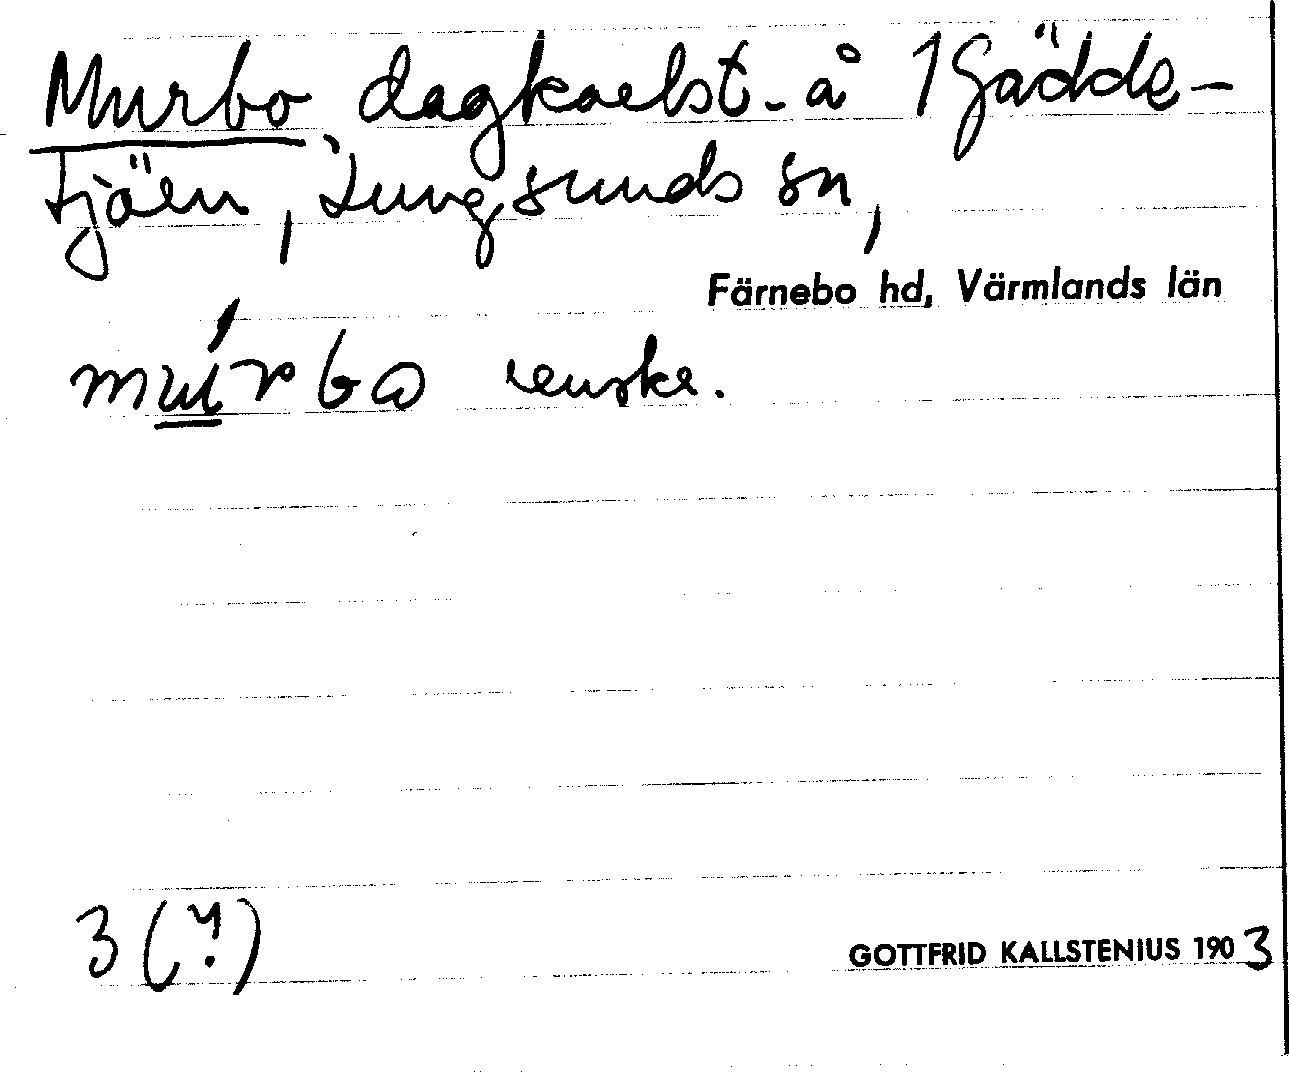 Murbo dagkarlst. å 1 Gädde-
tjäen, Lungsunds sn,
Färnebo hd, Värmlands län
murbo
3 (?)
GOTTFRID KALLSTENIUS 1903